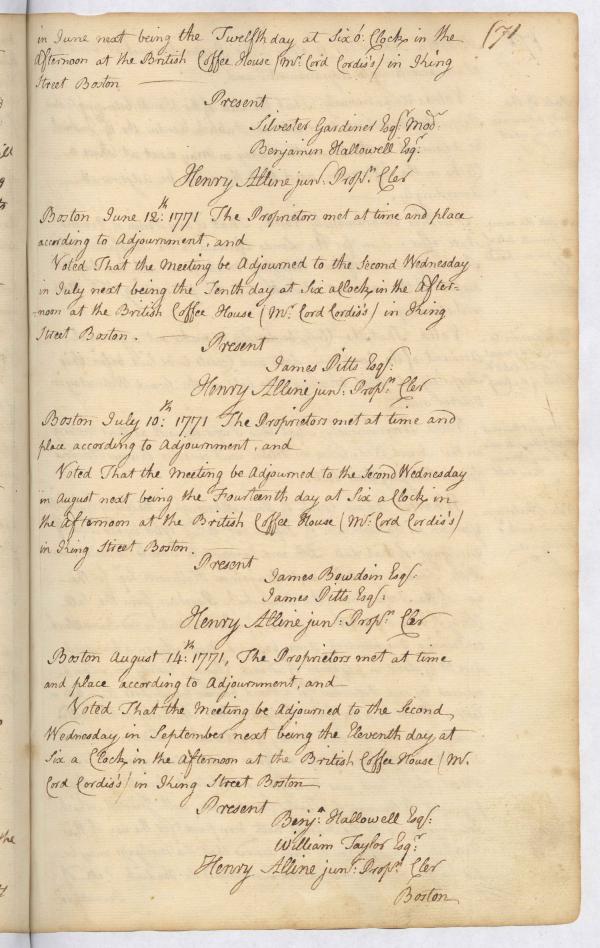 171
in June next being the Twelfth day at Six o: Clock in the
Afternoon at the British Coffee House (Mr. Cord Cordis's) in King
Street Boston
Present
Silvester Gardiner Esqr. Modr.
Benjamin Hallowell Esqr.
Henry Alline junr. Proprs. Cler
Boston June 12th: 1771 The Proprietors met at time and place
according to Adjournment, and
Voted That the Meeting be Adjourned to the Second Wednesday
in July next being the Tenth day at Six a Clock in the After-
-noon at the British Coffee House (Mr. Cord Cordis's) in King
Street Boston.
Present
James Pitts Esqr.
Henry Alline junr. Proprs. Cler
Boston July 10th: 1771 The Proprietors met at time and
place according to Adjournment, and
Voted That the Meeting be Adjourned to the Second Wednesday
in August next being the Fourteenth day at Six a Clock in
the Afternoon at the British Coffee House (Mr. Cord Cordis's)
in King Street Boston.
Present
James Bowdoin Esqr.
James Pitts Esqr.
Henry Alline junr. Proprs. Cler
Boston August 14th: 1771, The Proprietors met at time
and place according to Adjournment, and
Voted That the Meeting be Adjourned to the Second
Wednesday in September next being the Eleventh day at
Six a Clock in the Afternoon at the British Coffee House (Mr.
Cord Cordis's) in King Street Boston
Present
Benja. Hallowell Esqr.
William Taylor Esqr.
Henry Alline junr. Proprs. Cler
Boston
the